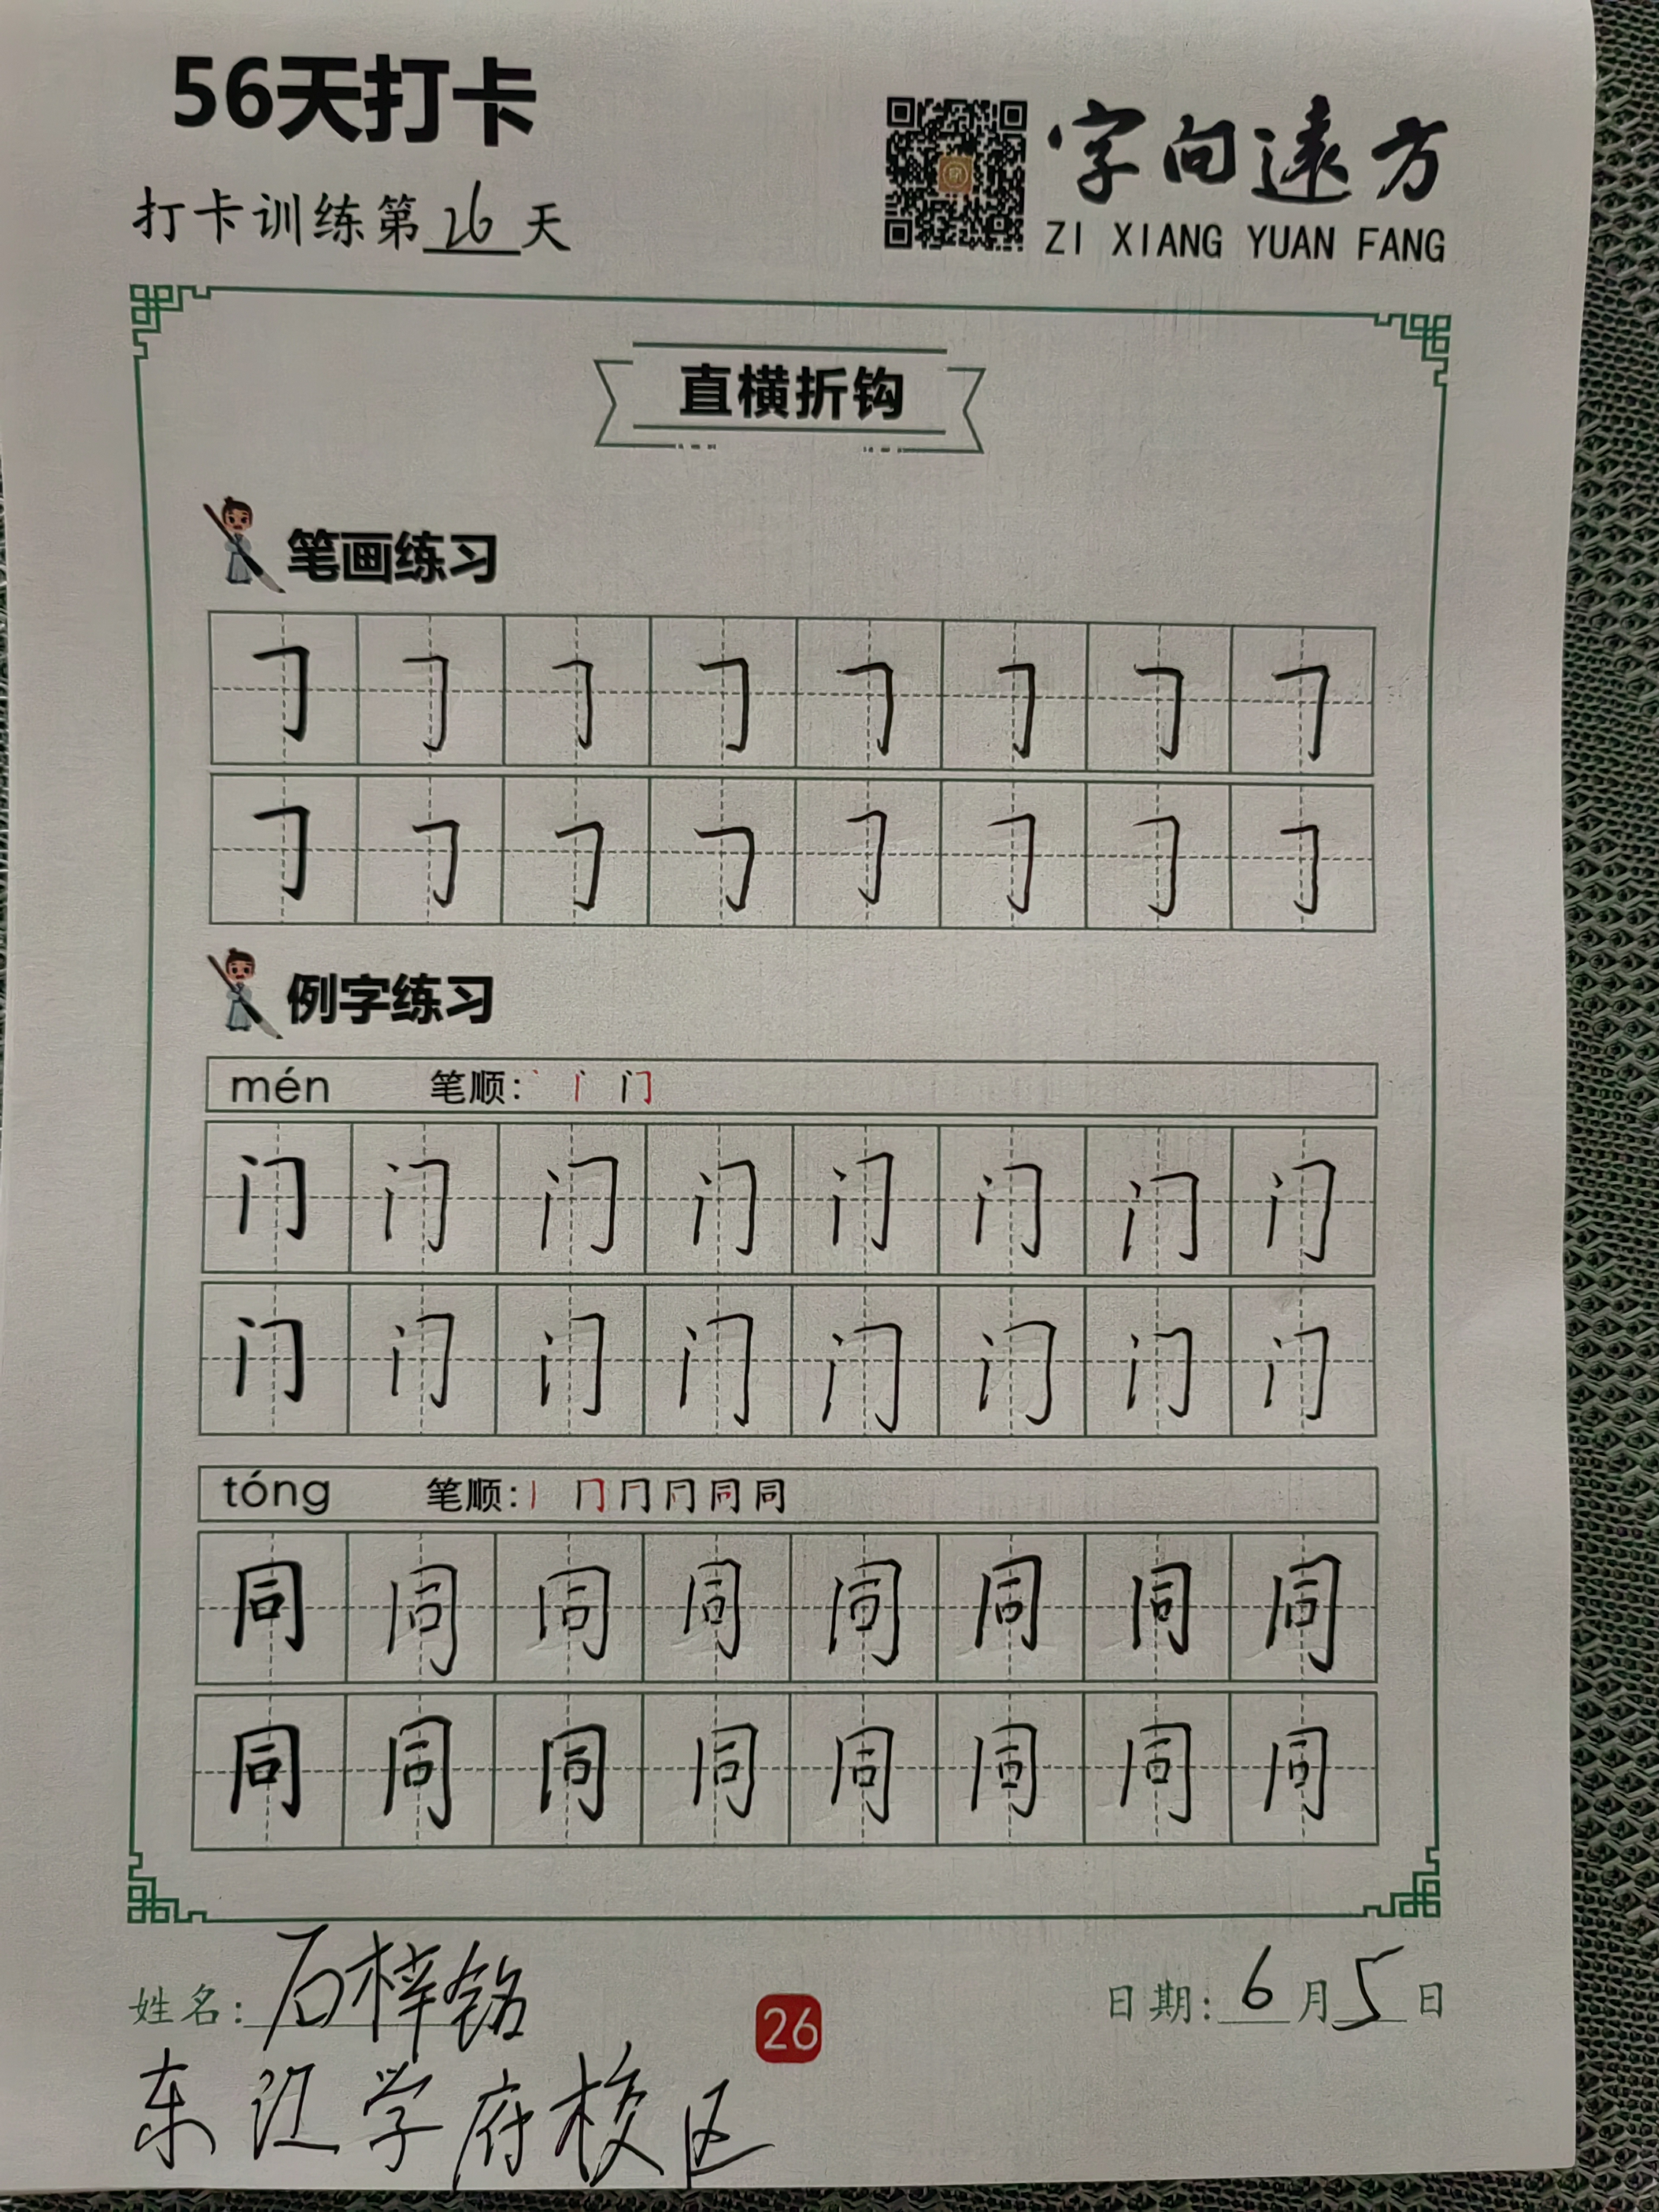 56天打卡
字向遠方
打卡训练第26天
ZI XIANG YUAN FANG
直横折钩
笔画练习
㇆ ㇆ ㇆ ㇆ ㇆ ㇆ ㇆ ㇆
㇆ ㇆ ㇆ ㇆ ㇆ ㇆ ㇆ ㇆
例字练习
mén 笔顺: 丶 门
门 门 门 门 门 门 门 门
门 门 门 门 门 门 门 门
tóng 笔顺: 丨 冂 同 同
同 同 同 同 同 同 同 同
同 同 同 同 同 同 同 同
姓名: 石梓铭
26
日期: 6月5日
东江学府校区